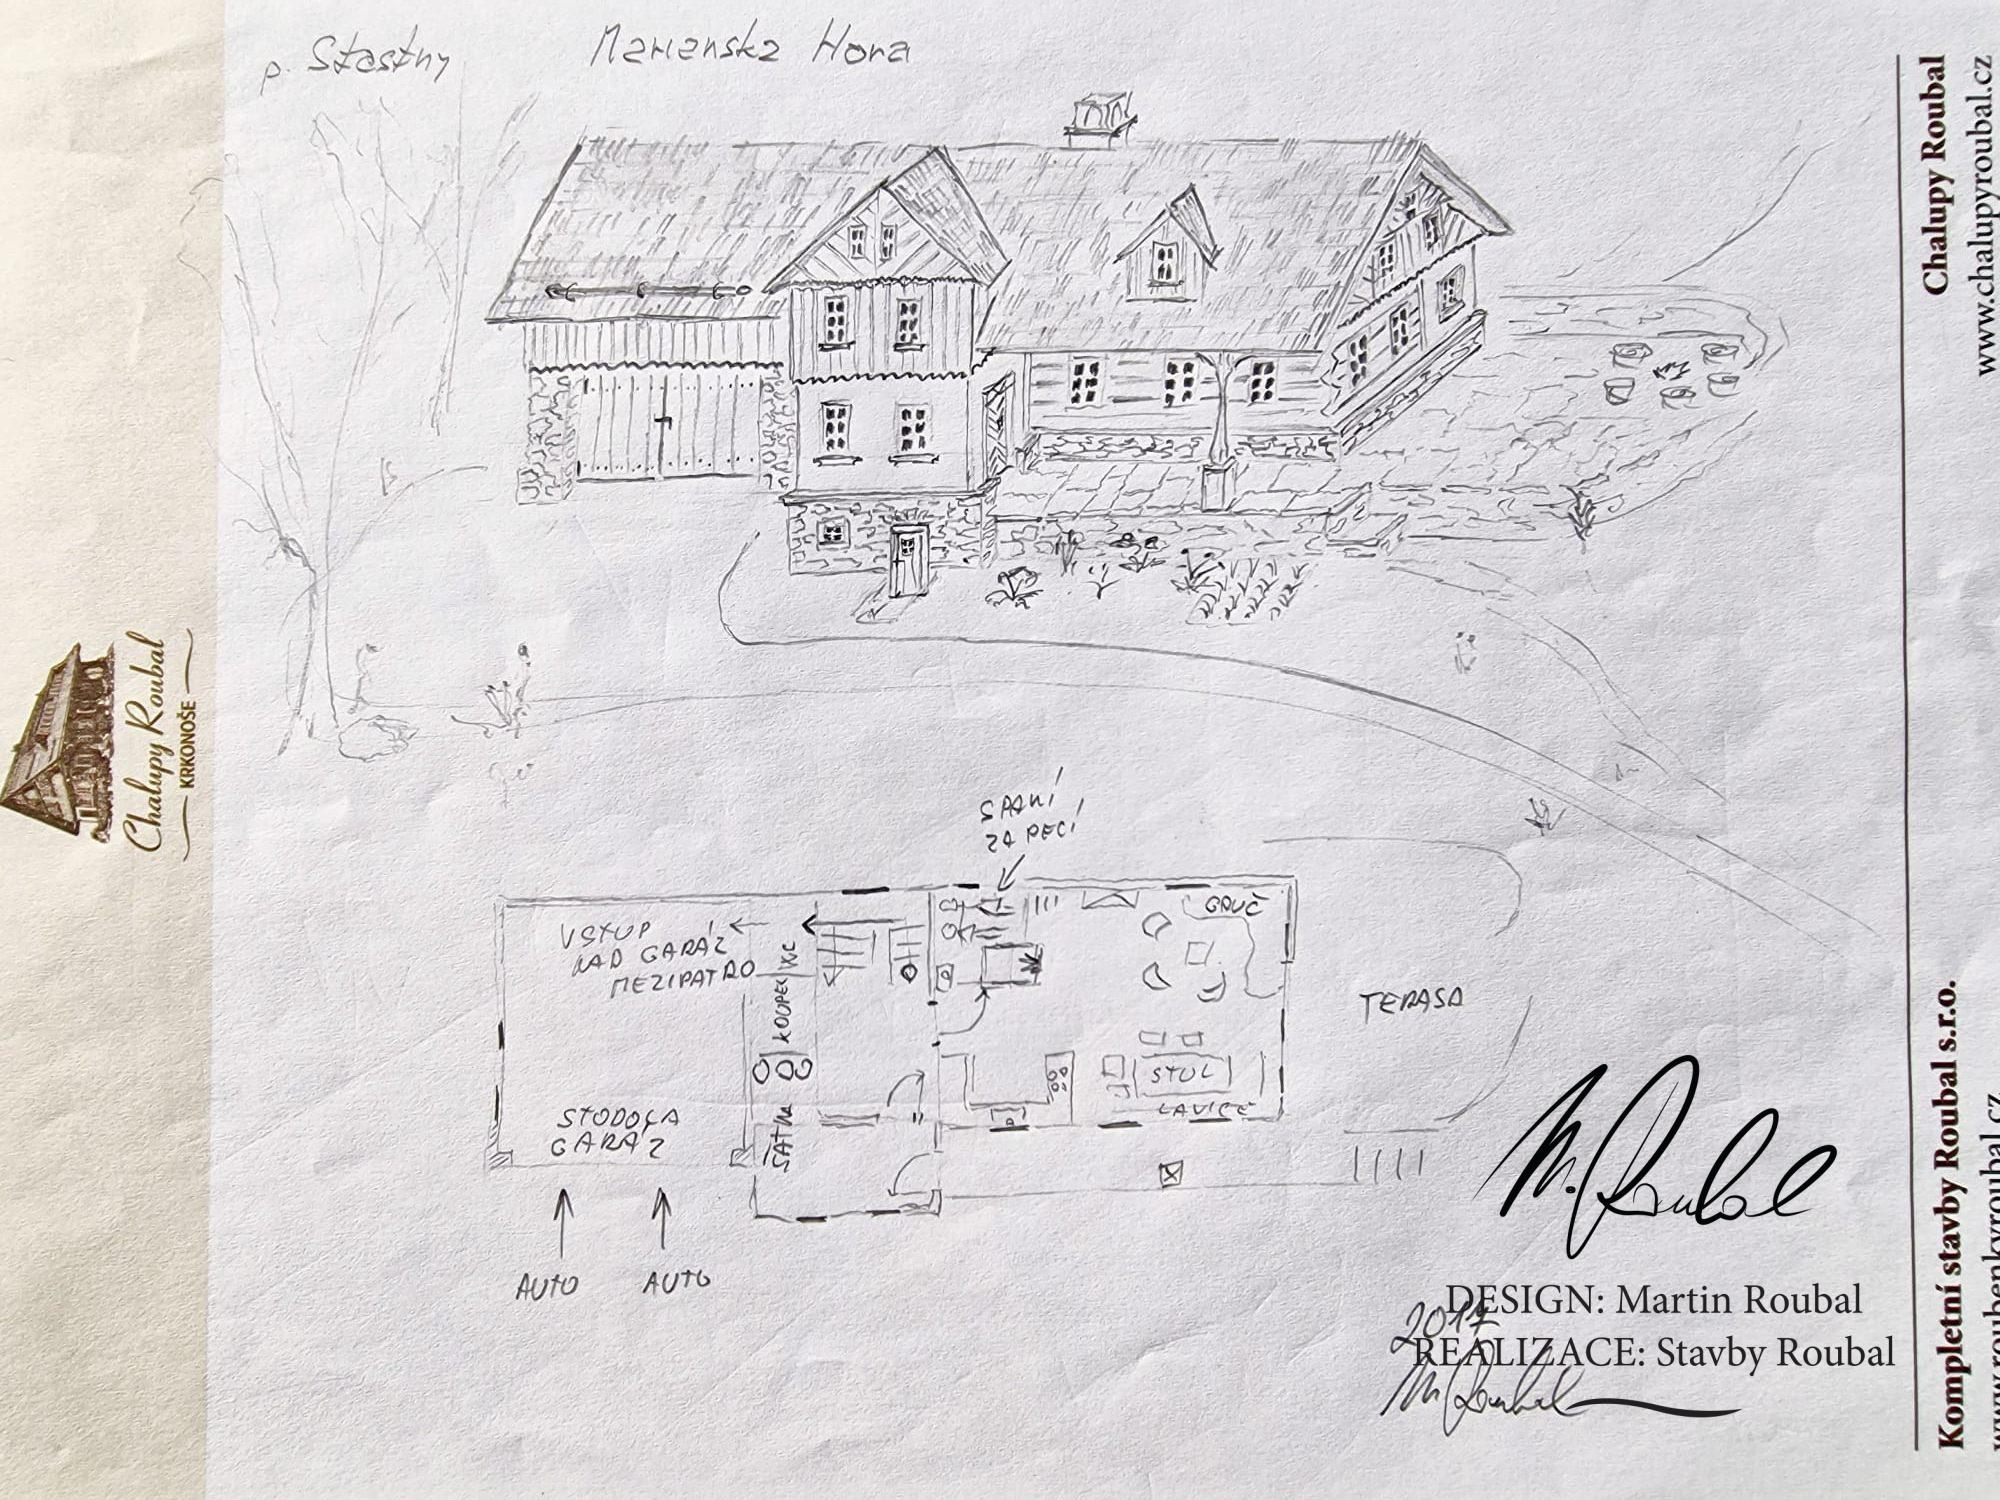 p. Stastny
Marianska Hora
Chalupy Roubal
www.chalupyroubal.cz
Chalupy Roubal
KRKONOŠE
SPANÍ
ZA PECÍ
VSTUP
NAD GARÁŽ
MEZIPATRO
WC
KOUPEL
GAUČ
TERASA
STUL
LAVICE
STODOLA
GARÁŽ
ŠATNA
AUTO
AUTO
M. Roubal
DESIGN: Martin Roubal
2017
REALIZACE: Stavby Roubal
M. Roubal
Kompletní stavby Roubal s.r.o.
www.roubenkyroubal.cz